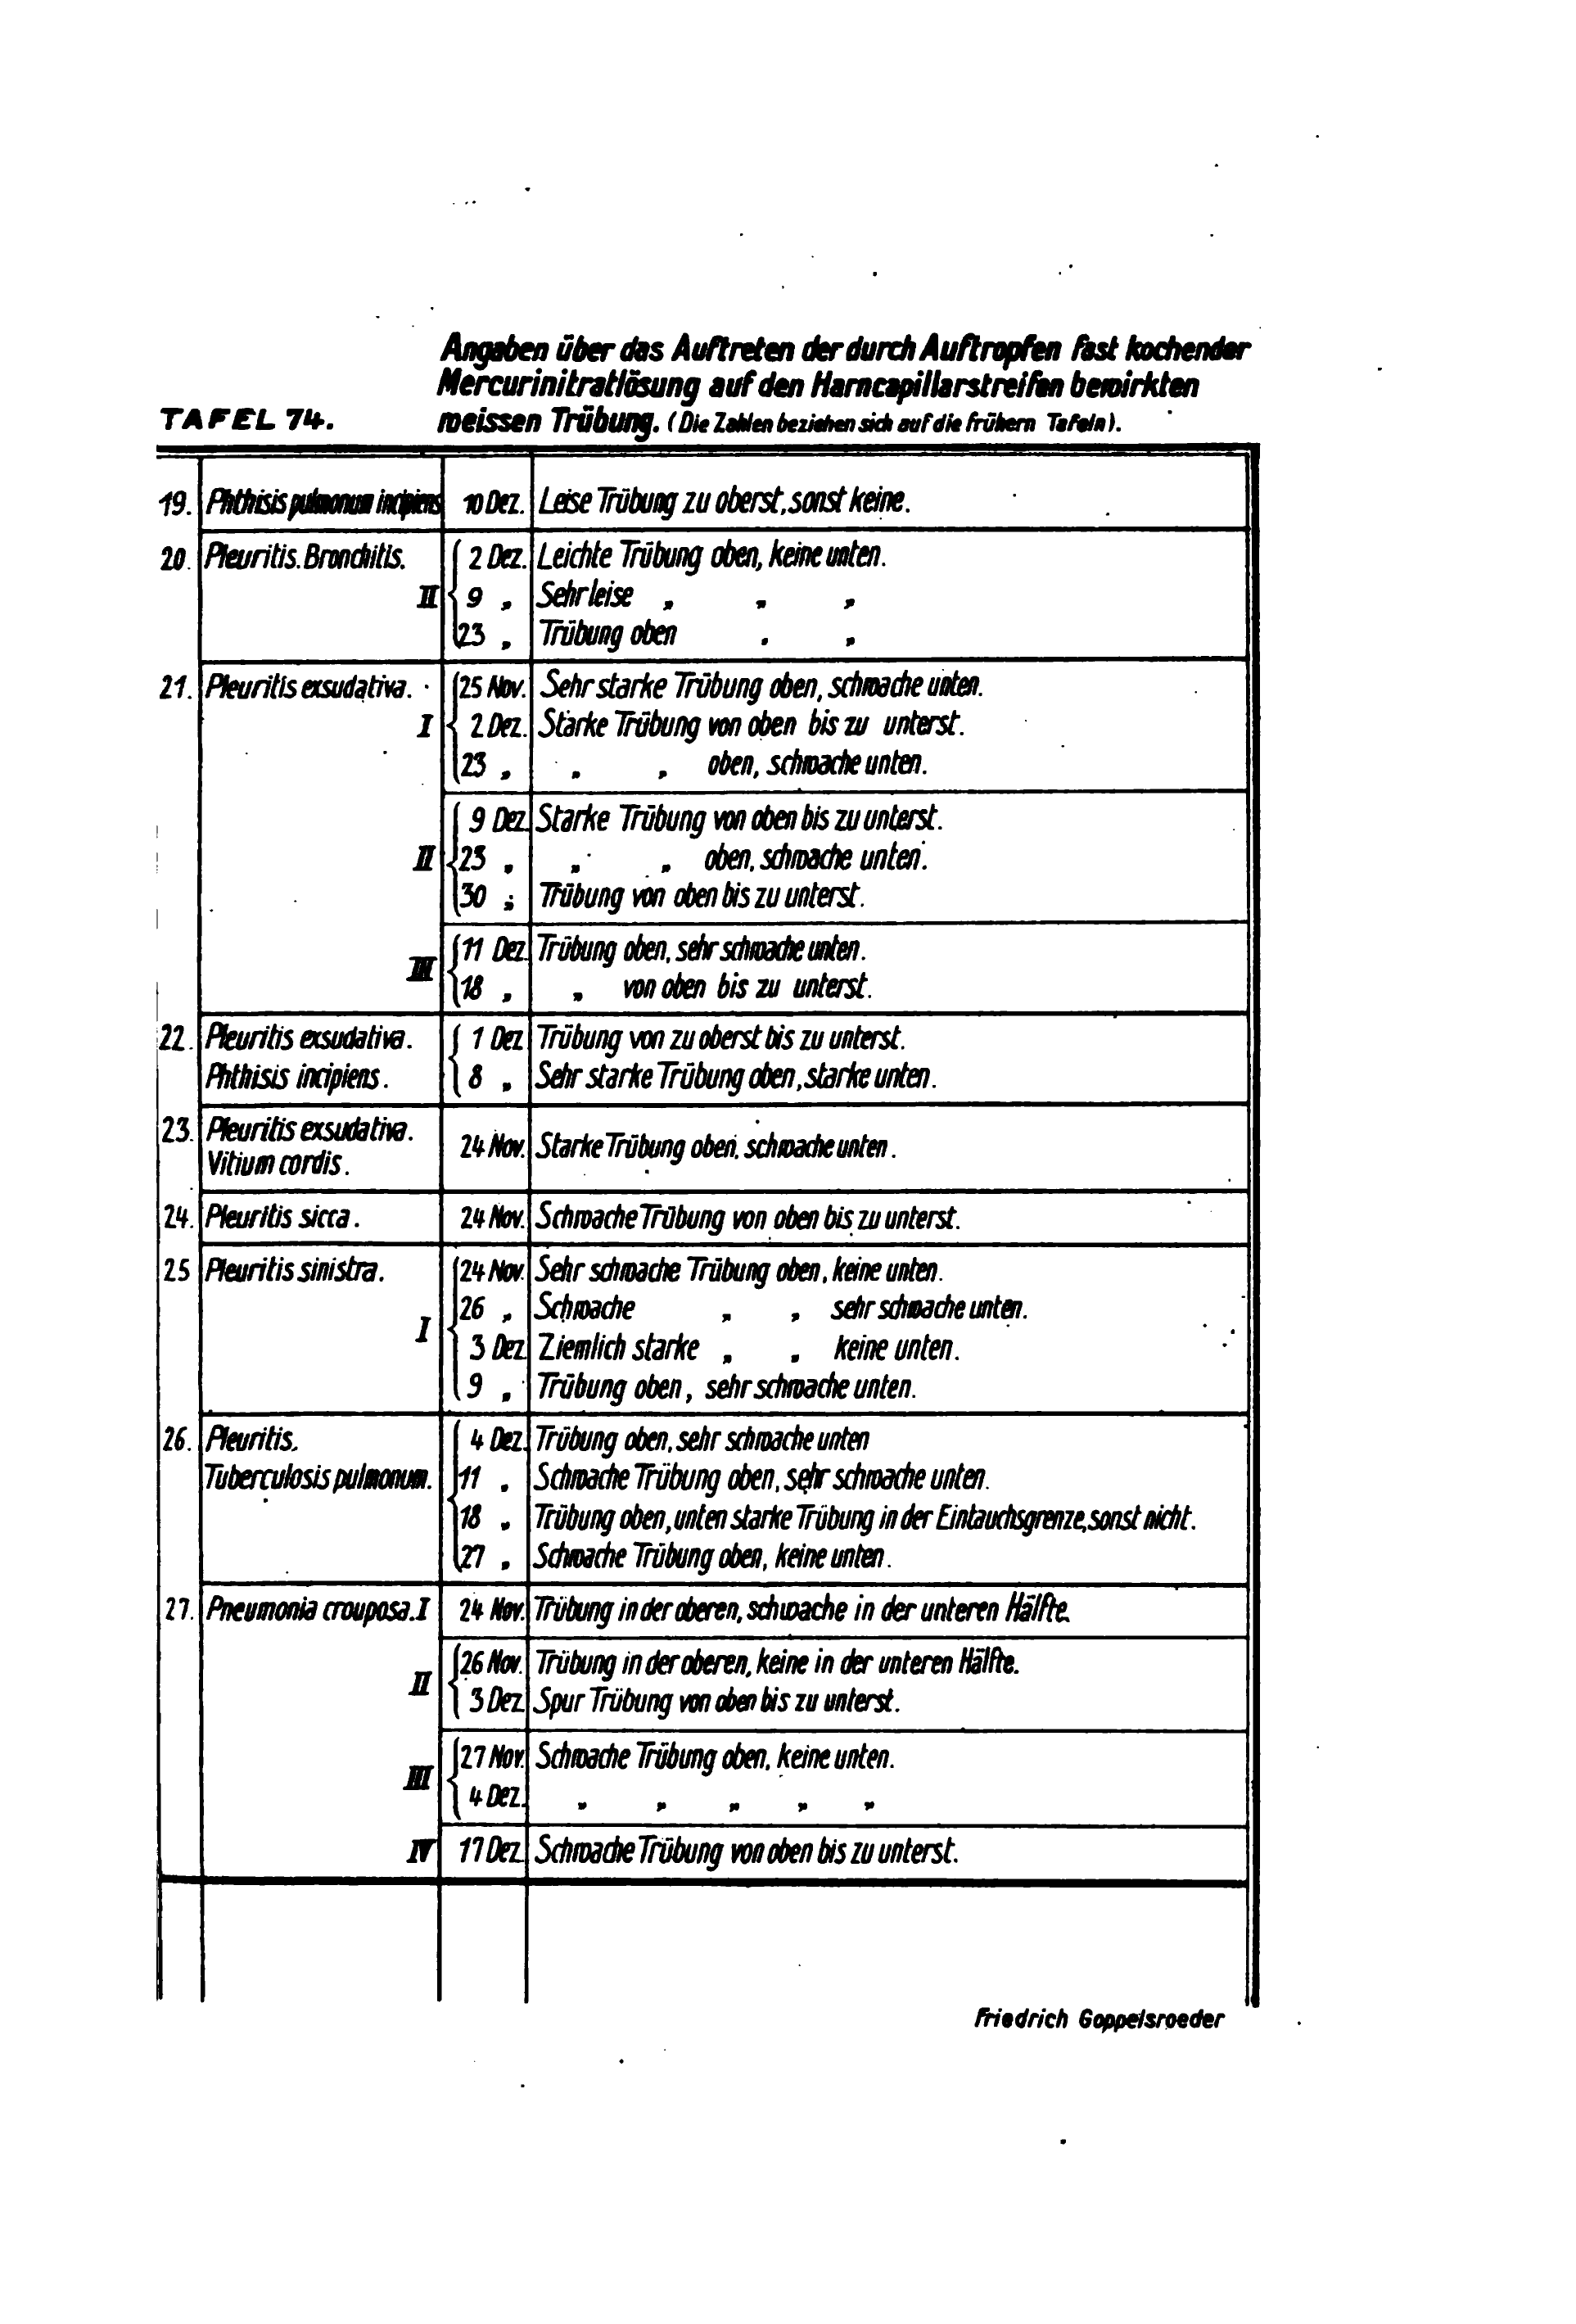 Angaben über das Auftreten der durch Auftropfen fast kochender
Mercurinitratlösung auf den Harncapillarstreifen bewirkten
TAFEL 74. weissen Trübung. (Die Zahlen beziehen sich auf die frühern Tafeln).
19. Phthisis pulmonum incipiens 10 Dez. Leise Trübung zu oberst, sonst keine.
20. Pleuritis. Bronchitis. 2 Dez. Leichte Trübung oben, keine unten.
II 9 „ Sehr leise „ „ „
23 „ Trübung oben „ „
21. Pleuritis exsudativa. 25 Nov. Sehr starke Trübung oben, schwache unten.
I 2 Dez. Starke Trübung von oben bis zu unterst.
23 „ „ „ oben, schwache unten.
9 Dez. Starke Trübung von oben bis zu unterst.
II 23 „ „ „ oben, schwache unten.
30 „ Trübung von oben bis zu unterst.
11 Dez. Trübung oben, sehr schwache unten.
III 18 „ „ von oben bis zu unterst.
22. Pleuritis exsudativa. 1 Dez. Trübung von zu oberst bis zu unterst.
Phthisis incipiens. 8 „ Sehr starke Trübung oben, starke unten.
23. Pleuritis exsudativa.
Vitium cordis. 24 Nov. Starke Trübung oben, schwache unten.
24. Pleuritis sicca. 24 Nov. Schwache Trübung von oben bis zu unterst.
25 Pleuritis sinistra. 24 Nov. Sehr schwache Trübung oben, keine unten.
26 „ Schwache „ „ sehr schwache unten.
I 3 Dez. Ziemlich starke „ „ keine unten.
9 „ Trübung oben, sehr schwache unten.
26. Pleuritis. 4 Dez. Trübung oben, sehr schwache unten
Tuberculosis pulmonum. 11 „ Schwache Trübung oben, sehr schwache unten.
18 „ Trübung oben, unten starke Trübung in der Eintauchsgrenze, sonst nicht.
27 „ Schwache Trübung oben, keine unten.
27. Pneumonia crouposa. I 24 Nov. Trübung in der oberen, schwache in der unteren Hälfte.
26 Nov. Trübung in der oberen, keine in der unteren Hälfte.
II 3 Dez. Spur Trübung von oben bis zu unterst.
27 Nov. Schwache Trübung oben, keine unten.
III 4 Dez. „ „ „ „ „
IV 17 Dez. Schwache Trübung von oben bis zu unterst.
Friedrich Goppelsroeder